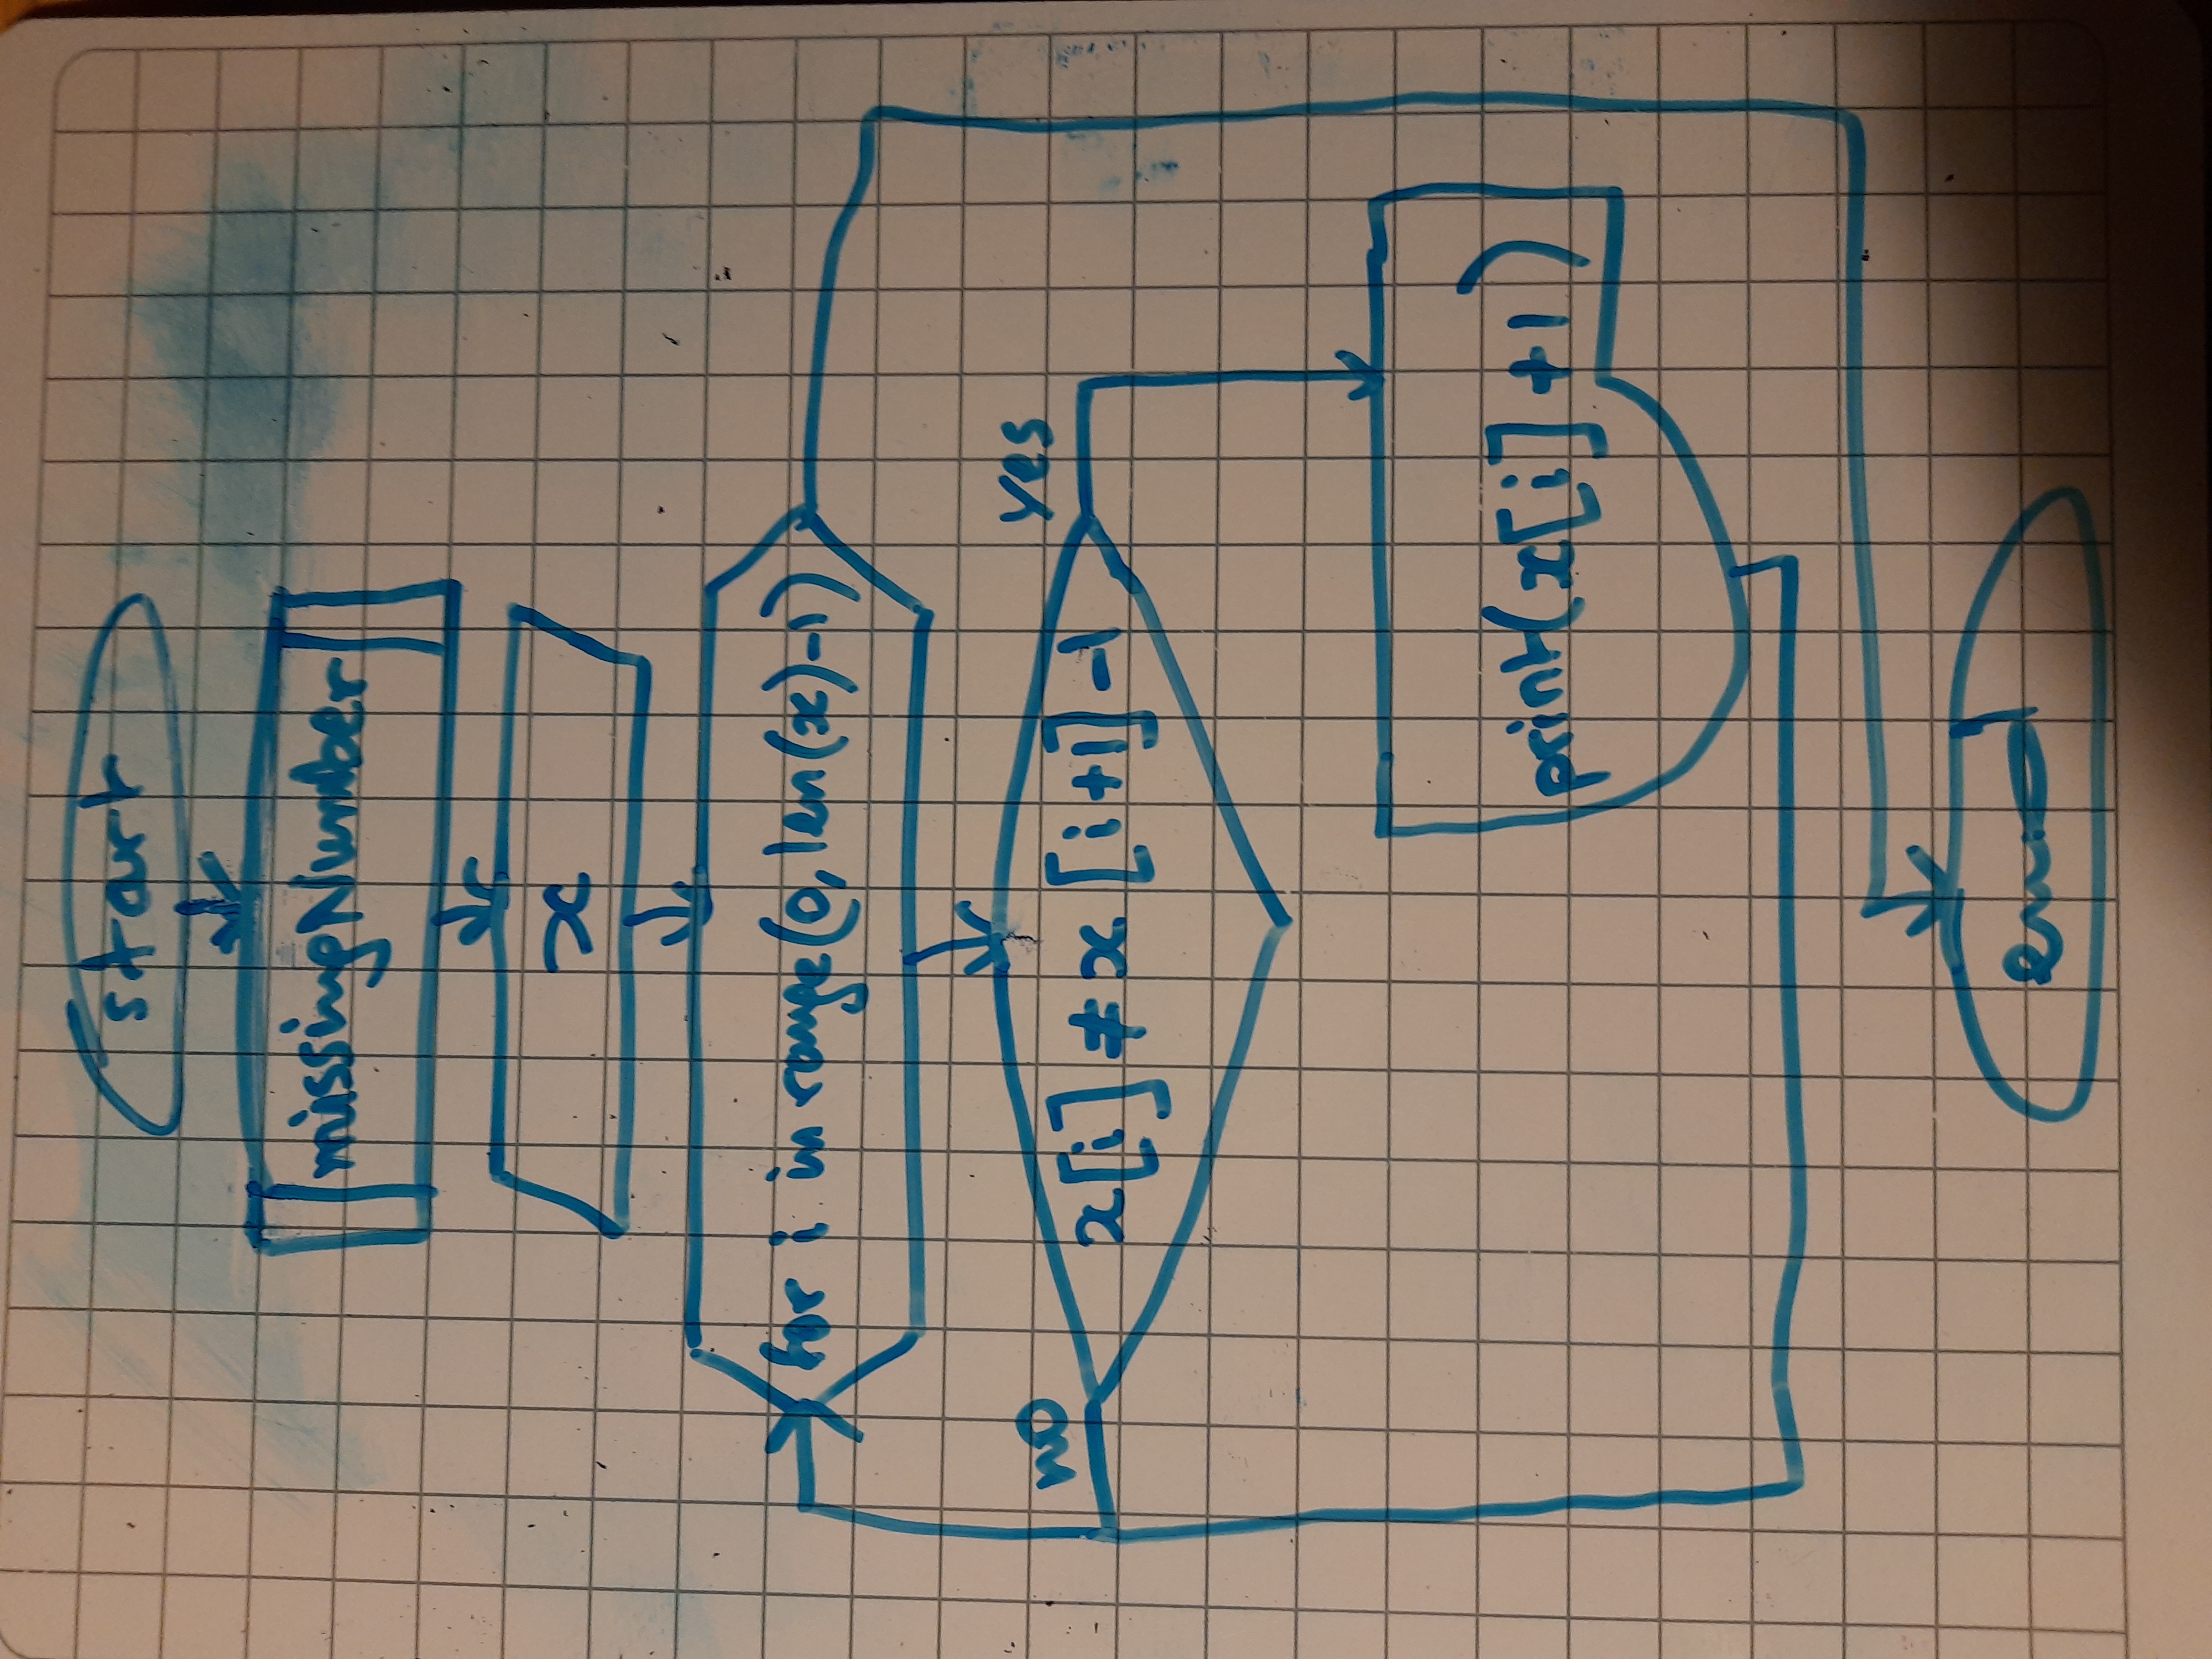 start
missingNumber
x
for i in range(0, len(x)-1)
no
yes
x[i] ≠ x [i+1] -1
print(x[i] +1 )
end